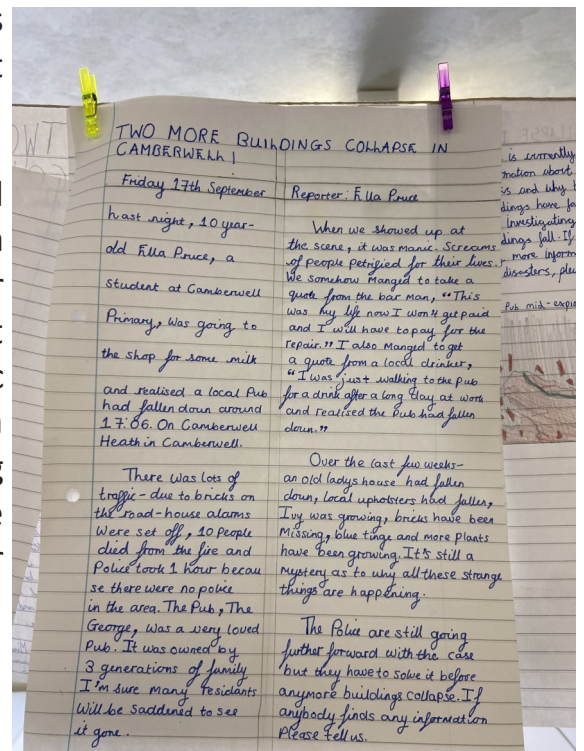 TWO MORE BUILDINGS COLLAPSE IN
CAMBERWELL!
Friday 17th September
Last night, 10 year-
old Ella Pruce, a
student at Camberwell
Primary, was going to
the shop for some milk
and realised a local Pub
had fallen down around
17:06. On Camberwell
Heath in Camberwell.
There was lots of
traffic - due to bricks on
the road - house alarms
were set off, 10 People
died from the fire and
Police took 1 hour becau
se there were no police
in the area. The Pub, The
George, was a very loved
Pub. It was owned by
3 generations of family
I'm sure many residants
will be saddened to see
it gone.
Reporter: Ella Pruce
When we showed up at
the scene, it was manic. Screams
of people petrified for their lives.
We somehow manged to take a
quote from the bar man, "This
was my life now I won't get paid
and I will have to pay for the
repair." I also manged to get
a quote from a local drinker,
"I was just walking to the Pub
for a drink after a long day at work
and realised the Pub had fallen
down."
Over the last few weeks-
an old ladys house had fallen
down, local upholsters had fallen,
Ivy was growing, bricks have been
missing, blue tinge and more plants
have been growing. It's still a
mystery as to why all these strange
things are happening.
The Police are still going
further forward with the case
but they have to solve it before
anymore buildings collapse. If
anybody finds any information
Please tell us.
is currently
mation about
is and why
dings have
investigating
dings fall. If
more inform
disasters, ple
Pub mid-explo